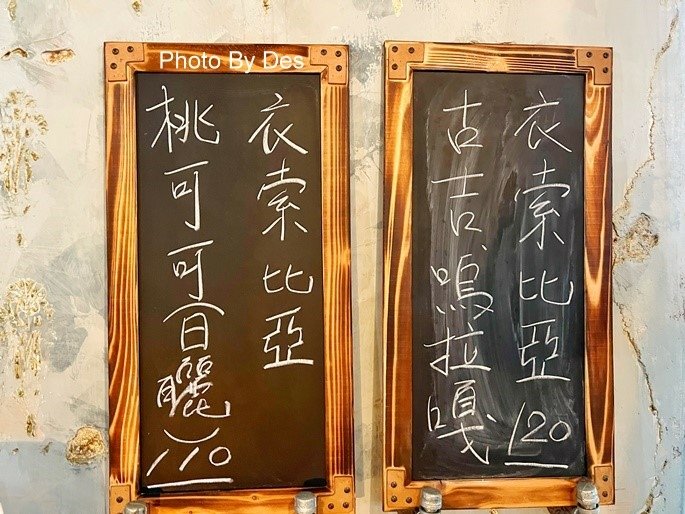 Photo By Des
衣索比亞
桃可可(日曬)110
衣索比亞120
古吉嗚拉嘎